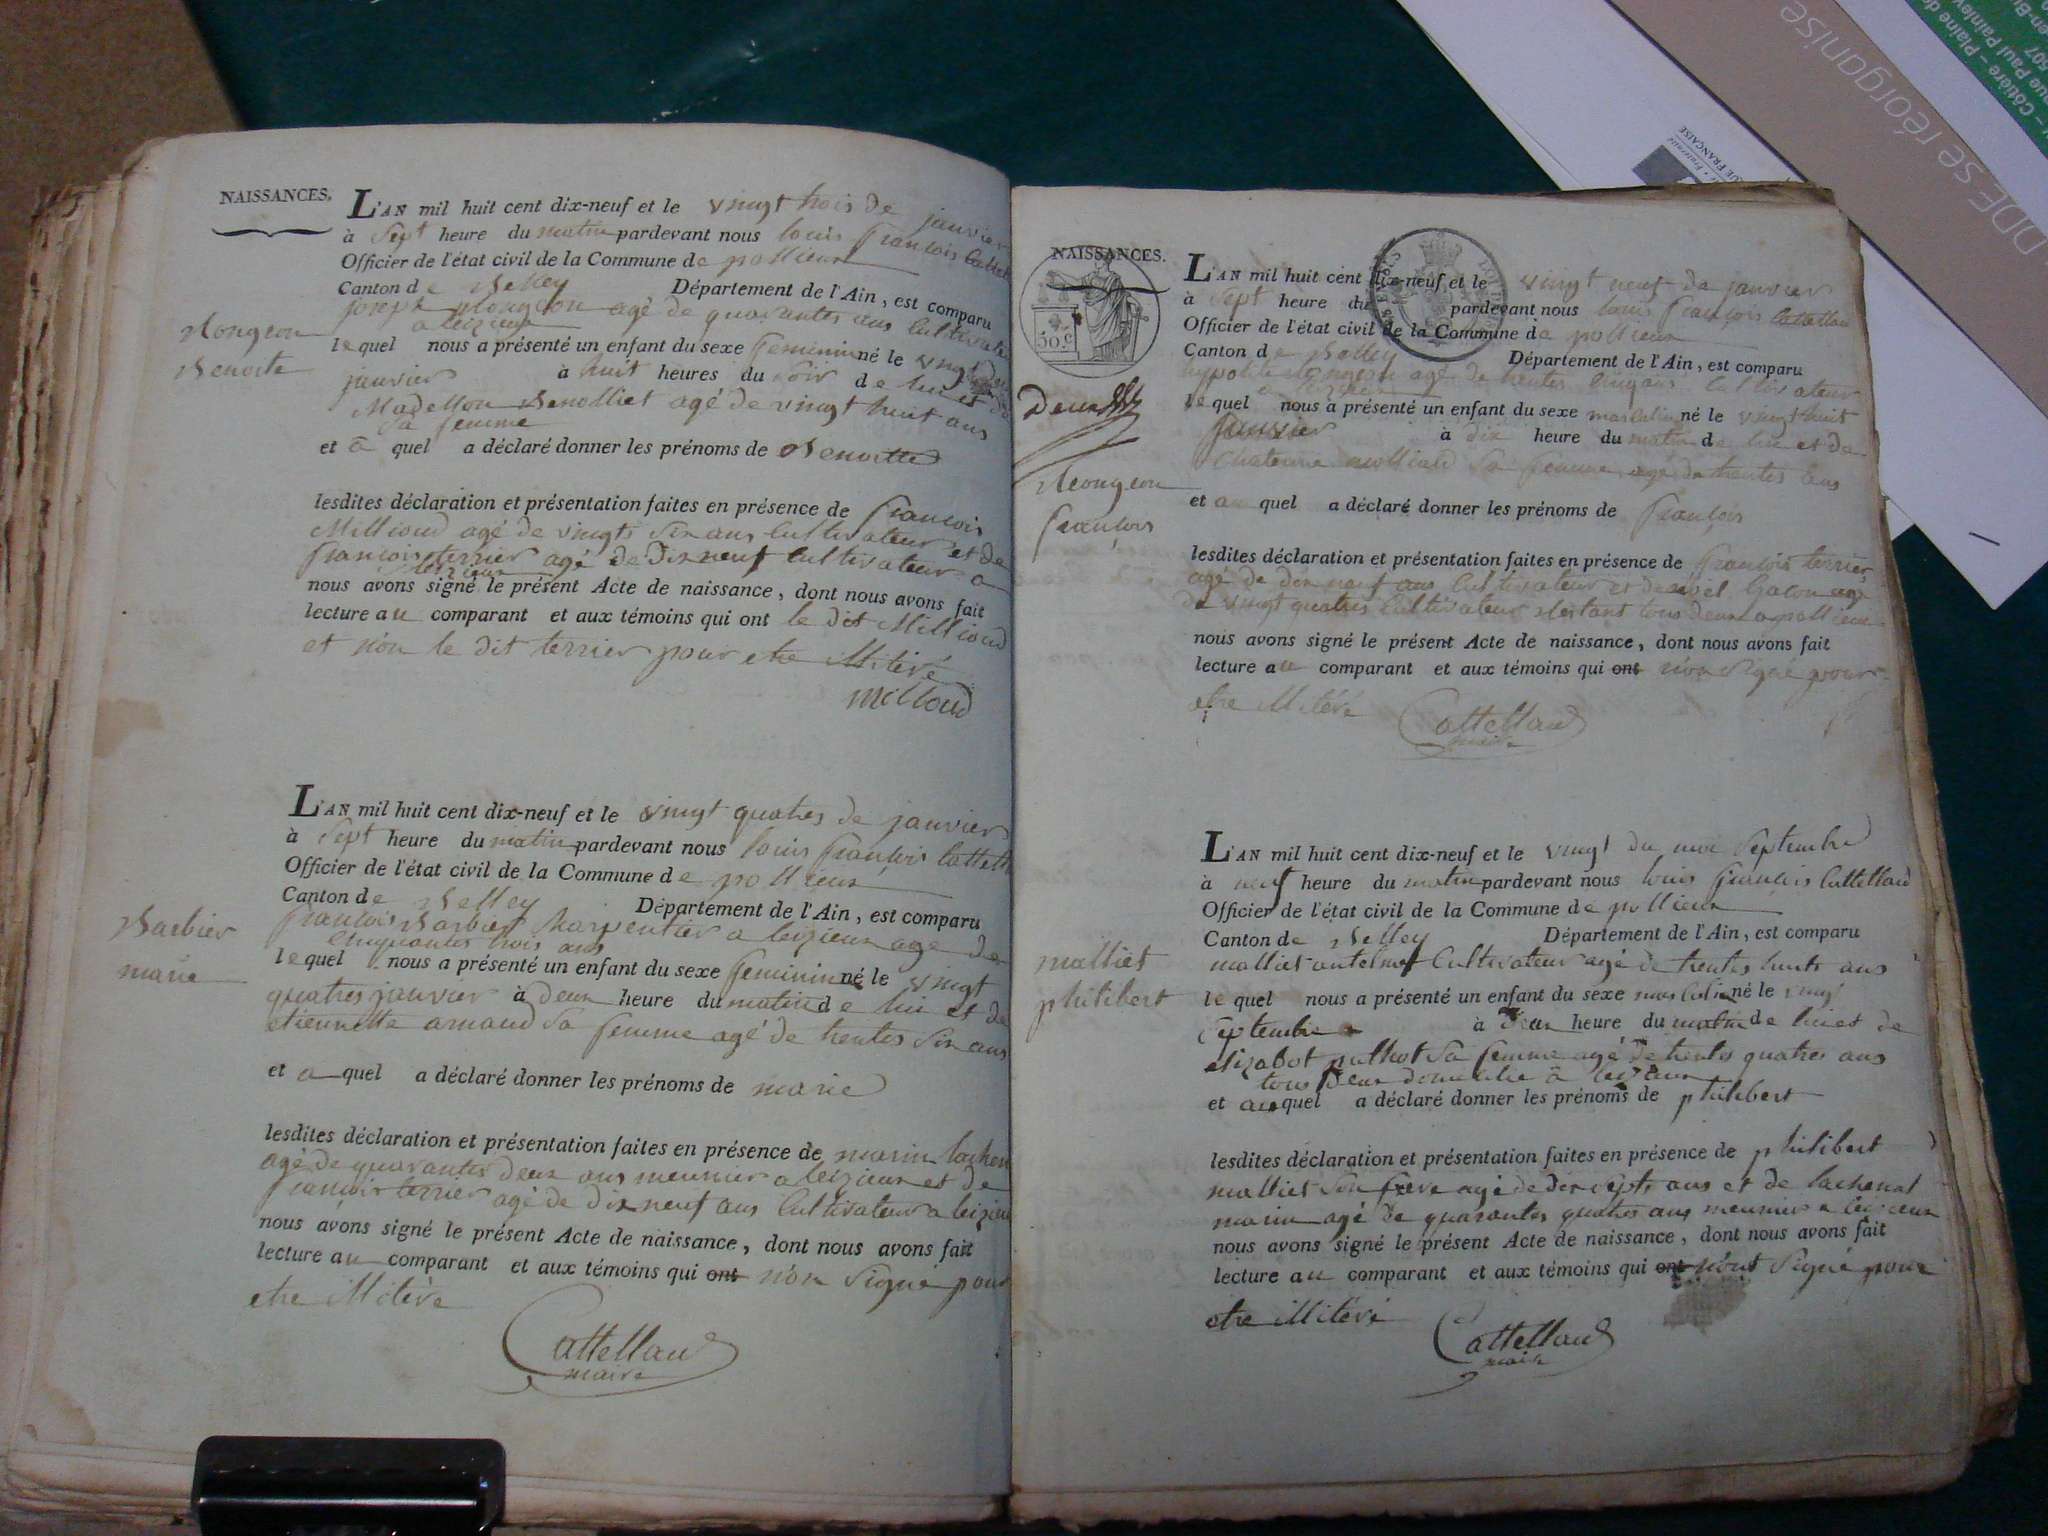 NAISSANCES.
L'AN mil huit cent dix-neuf et le vingt trois de janvier
à Sept heure du matin pardevant nous louis françois
Officier de l'état civil de la Commune de pollieux
Canton de Belley Département de l'Ain, est comparu
joseph Mongeon agé de quarantes ans Cultivate
a leizieux
lequel nous a présenté un enfant du sexe feminin né le vingt
janvier à huit heures du soir de lui et de
Madellon Benolliet agé de vingt huit ans
Sa femme
et a quel a déclaré donner les prénoms de Benoitte
Mongeon
Benoite
lesdites déclaration et présentation faites en présence de françois
Millioud agé de vingts six ans Cultivateur et de
françois terrier agé de dix neuf Cultivateur a
leizieux
nous avons signé le présent Acte de naissance, dont nous avons fait
lecture au comparant et aux témoins qui ont le dit Millioud
et n'on le dit terrier pour etre illitéré
milloud
L'AN mil huit cent dix-neuf et le vingt quatres de janvier
à Sept heure du matin pardevant nous louis françois Cattell
Officier de l'état civil de la Commune de pollieux
Canton de Belley Département de l'Ain, est comparu
françois Barbier Charpentier a leizieux agé de
Cinquantes trois ans
lequel nous a présenté un enfant du sexe feminin né le vingt
quatres janvier à deux heure du matin de lui et de
etiennette arnaud Sa femme agé de trentes Six ans
et a quel a déclaré donner les prénoms de marie
Barbier
marie
lesdites déclaration et présentation faites en présence de marin lachen
agé de quarantes deux ans meunier a leizieux et de
françois terrier agé de dix neuf ans Cultivateur a leizieu
nous avons signé le présent Acte de naissance, dont nous avons fait
lecture au comparant et aux témoins qui ont n'on Signé pour
etre illitéré
Cattelland
maire
NAISSANCES.
50 c
deux
L'AN mil huit cent dix-neuf et le vingt neuf de janvier
à Sept heure du pardevant nous louis françois Cattelland
Officier de l'état civil de la Commune de pollieux
Canton de Belley Département de l'Ain, est comparu
hypolite Mongeon agé de trentes cinq ans Cultivateur
a leizieux
lequel nous a présenté un enfant du sexe masculin né le vingt huit
janvier à dix heure du matin de lui et de
molliand Sa femme agé de trentes ans
et au quel a déclaré donner les prénoms de françois
Mongeon
françois
lesdites déclaration et présentation faites en présence de françois terrier
agé de dix neuf ans Cultivateur et de Gacon agé
de vingt quatres Cultivateur restant tous deux a pollieux
nous avons signé le présent Acte de naissance, dont nous avons fait
lecture au comparant et aux témoins qui ont n'on Signé pour
etre illitéré
Cattelland
maire
L'AN mil huit cent dix-neuf et le vingt du moi Septembre
à neuf heure du matin pardevant nous louis françois Cattelland
Officier de l'état civil de la Commune de pollieux
Canton de Belley Département de l'Ain, est comparu
malliet antelme Cultivateur agé de trentes huits ans
lequel nous a présenté un enfant du sexe masculin né le vingt
Septembre à deux heure du matin de lui et de
elizabot Sa femme agé de trentes quatres ans
tous deux domicilié a leizieux
et au quel a déclaré donner les prénoms de philibert
malliet
philibert
lesdites déclaration et présentation faites en présence de philibert
malliet Son frere agé de dix Septs ans et de lachenal
marin agé de quarantes quatres ans meunier a leizieux
nous avons signé le présent Acte de naissance, dont nous avons fait
lecture au comparant et aux témoins qui ont n'ont Signé pour
etre illitéré
Cattelland
maire
DDE se réorganise
Côtière – Plaine de
ue Paul Painlevé
507
UE FRANÇAISE